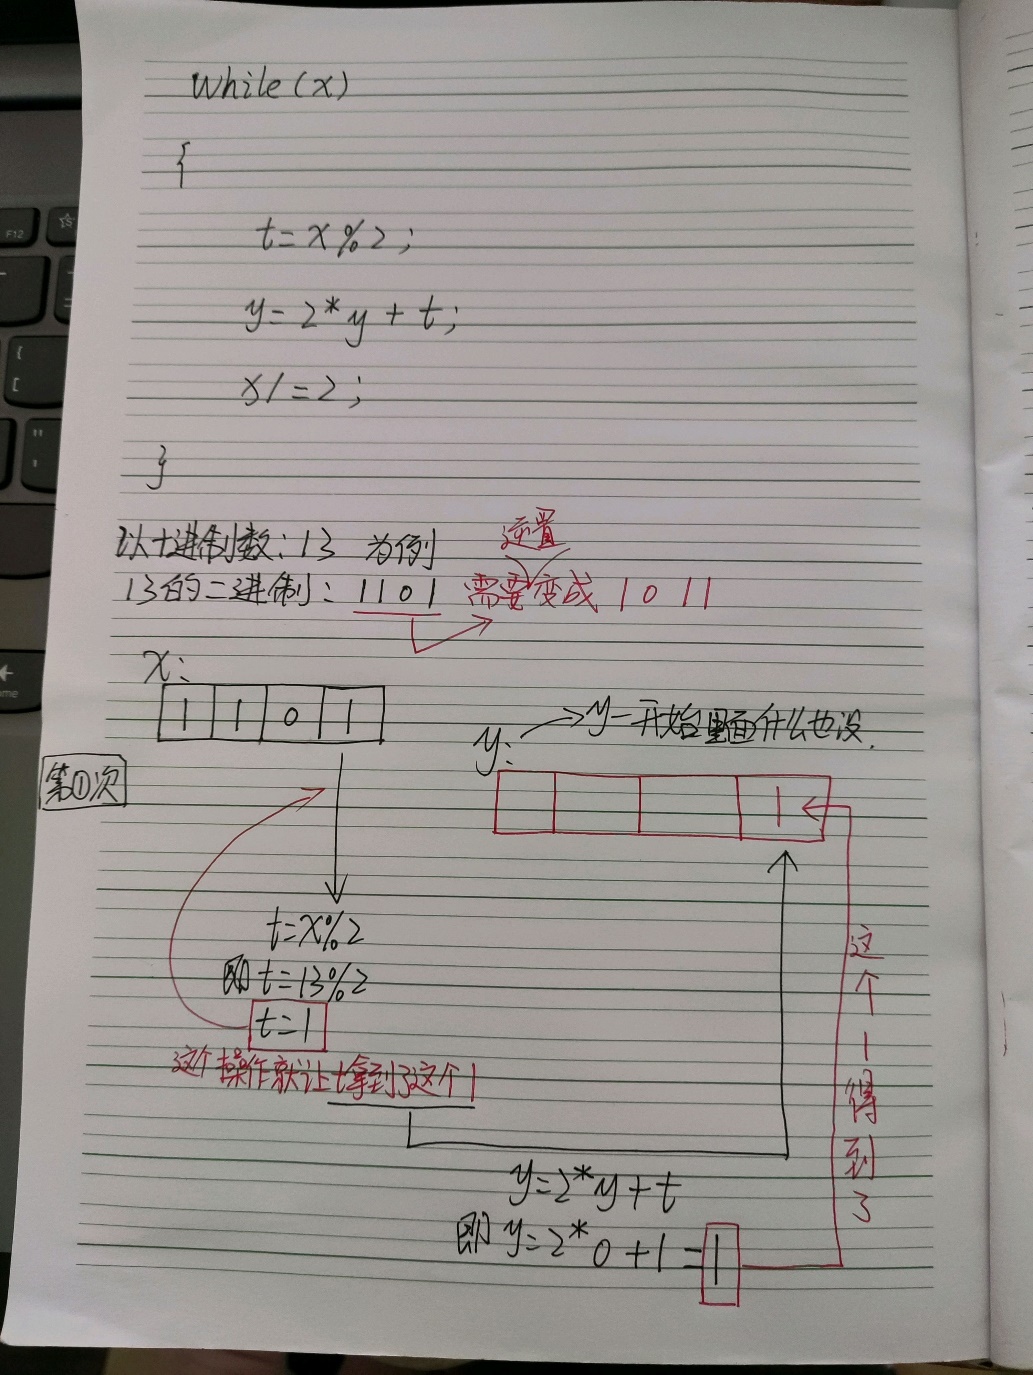 while(x)
{
t=x%2;
y=2*y+t;
x/=2;
}
以十进制数:13 为例
逆置
13的二进制:1101 需要变成 1011
x:
1 1 0 1
y: y一开始里面什么也没.
第①次
1
t=x%2
即t=13%2
t=1
这个操作就让t拿到了这个1
y=2*y+t
即y=2*0+1=1
这个1得到了
F12
{
[
"
'